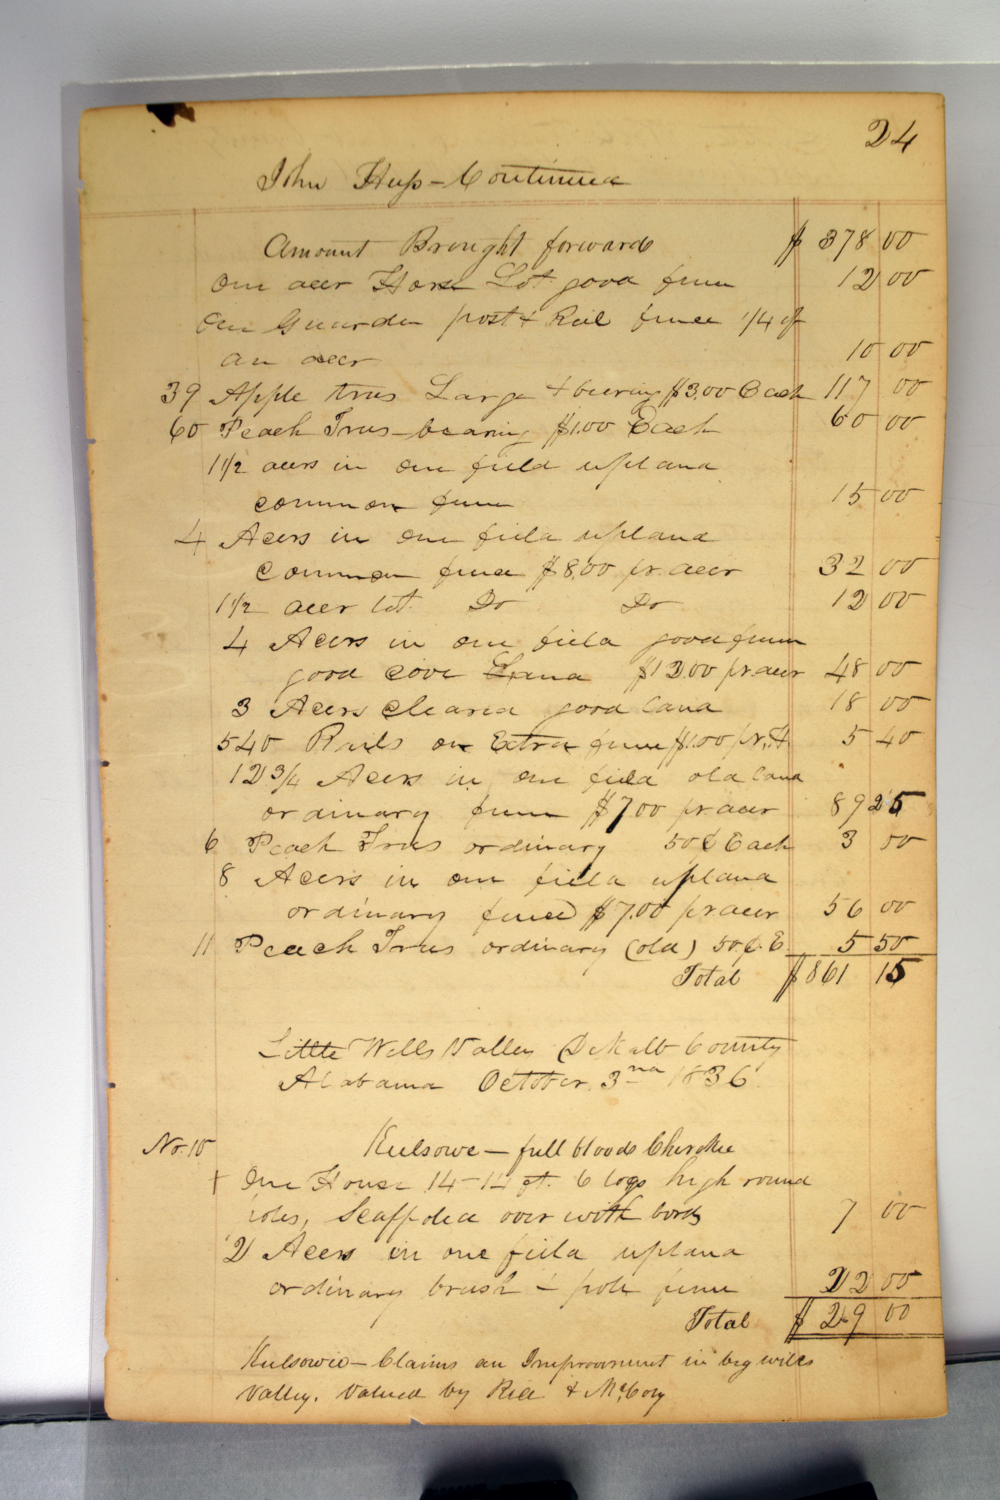 24
John Huss - Continued
Amount Brought forward $ 378 00
One acer Horse Lot good fence 12 00
One Guarden post & Rail fence 1/4 of
an acer 10 00
39 Apple trees Large & bearing $3.00 Each 117 00
60 Peach Trees - bearing $1.00 Each 60 00
1 1/2 acers in one field upland
common fence 15 00
4 Acers in one field upland
common fence $8.00 pr. acer 32 00
1 1/2 acer lot Do Do 12 00
4 Acers in one field good fence
good cove Land $12.00 pr. acer 48 00
3 Acers cleared good land 18 00
540 Rails on Extra fence $1.00 pr. H. 5 40
12 3/4 Acers in one field old land
ordinary fence $7.00 pr acer 89 25
6 Peach Trees ordinary 50¢ Each 3 00
8 Acers in one field upland
ordinary fence $7.00 pr acer 56 00
11 Peach Trees ordinary (old) 50¢ E. 5 50
Total $ 861 15
Little Wills Valley DeKalb County
Alabama October 3nd 1836
No. 10 Kulsowe - full bloods Cherokee
+ One House 14-14 ft. 6 logs high round
poles, Scaffoled over with bords 7 00
2 Acers in one field upland
ordinary brush & pole fence 22 00
Total $ 29 00
Kulsowie - Claims an Improvement in big wills
Valley. Valued by Rice & McCoy